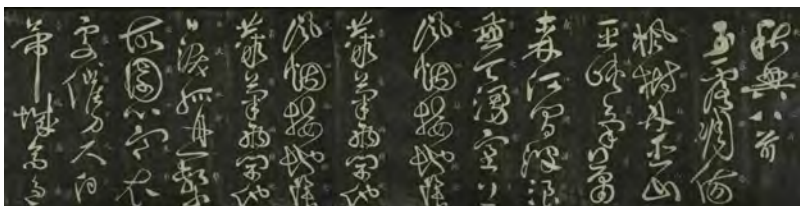 秋興八首
玉露凋傷
楓樹林巫山
巫峽氣蕭
森江間波浪
兼天湧塞上
風烟接地陰
叢菊兩開他
風烟接地陰
叢菊兩開他
日淚孤舟一繫
故園心寒衣
處催刀尺白
帝城高急